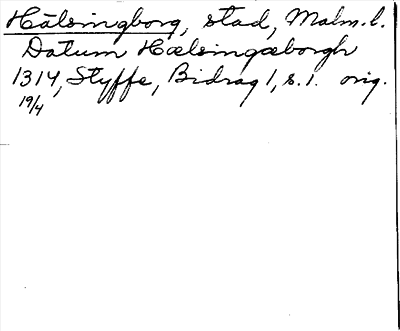 Hälsingborg, stad, Malm.l.
Datum Hælsingæborgh
1314, Styffe, Bidrag 1, s. 1. orig.
19/4